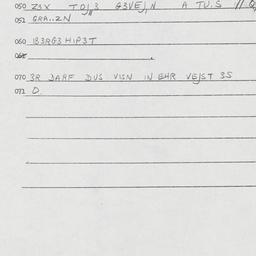 050 Z3X TOJ,3 G3VEJ,N A TU.S
051 GRA..ZN
060 IB3RG3HIP3T
065
070 3R DARF DUS VISN IN EHR VEJST 3S
071 D.